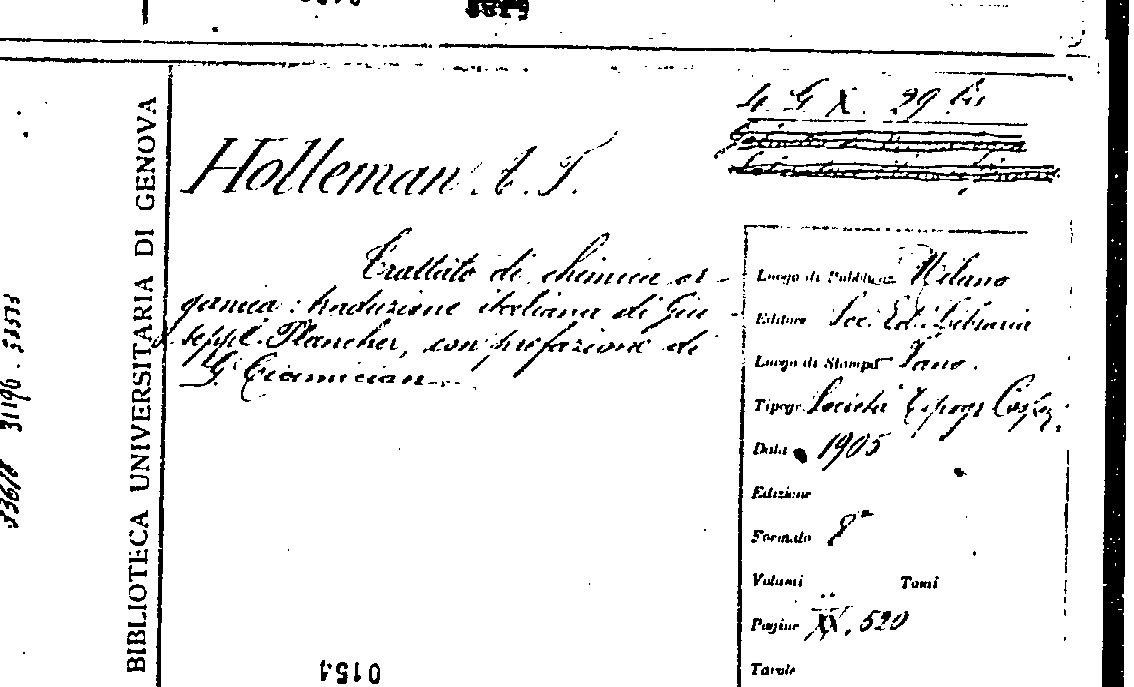 BIBLIOTECA UNIVERSITARIA DI GENOVA
31196
4. G X. 39 bis
Holleman A. F.
Trattato di chimica or-
ganica: traduzione italiana di Giu-
seppe Plancher, con prefazione di
G. Ciamician
Luogo di Pubblicaz. Milano
Editore Soc. Ed. Libraria
Luogo di Stampa
Tipogr. Società Tipogr.
Data 1905
Edizione
Formato 8°
Volumi Tomi
Pagine XX, 520
Tavole
0154